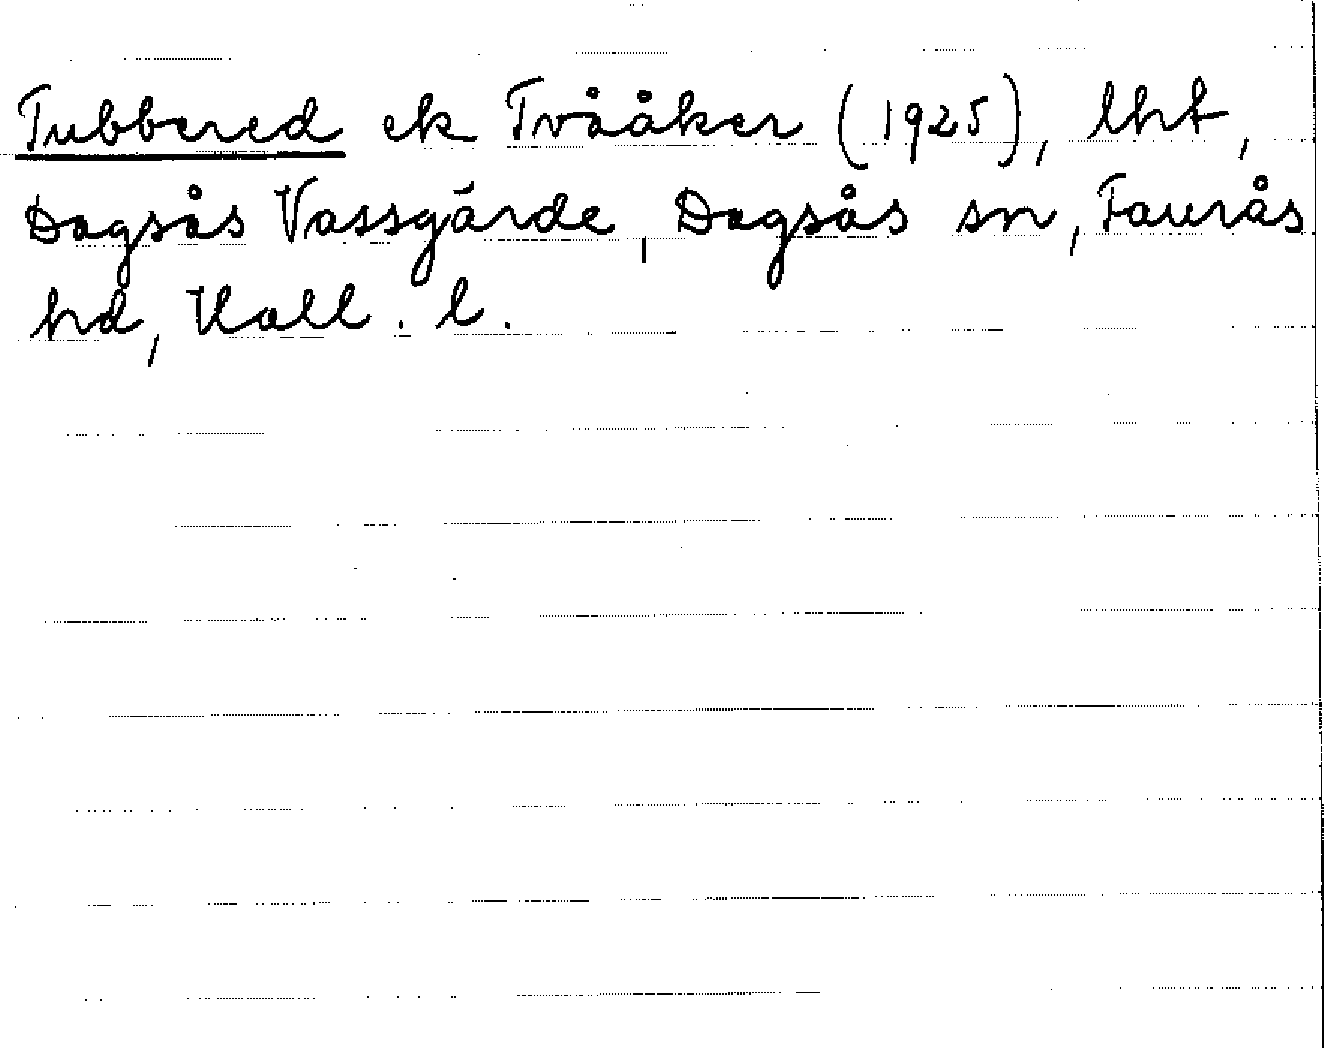 Tubbered ek Tvååker (1925), lht,
Dagsås Vassgärde, Dagsås sn, Faurås
hd, Hall. l.